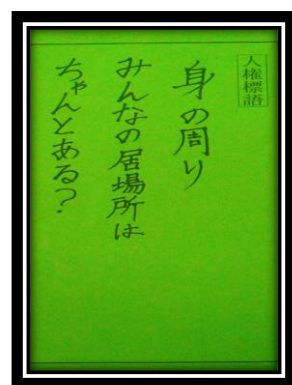 人権標語
身の周り
みんなの居場所は
ちゃんとある?